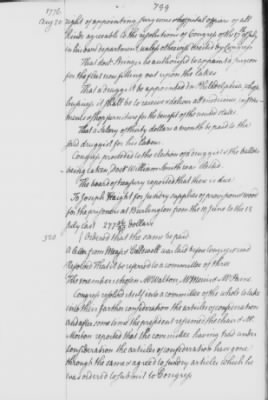 799
1776.
Aug 20
right of appointing surgeons & hospital officers of all
kinds agreeable to the resolutions of Congress of the 17th of July
in his own department, unless otherwise directed by Congress
That doct Stringer be authorized to appoint a surgeon
for the fleet now fitting out upon the lakes
That a druggist be appointed in Philadelphia whose
business it shall be to receive & deliver all medicines instru-
ments & shop furniture for the benefit of the united states
That a salary of thirty dollars a month be paid to the
said druggist for his labour.
Congress proceeded to the election of a druggist & the ballots
being taken, Doct William Smith was elected
The board of treasury reported that there is due
To Joseph Haight for sundry supplies of provisions & wood
for the prisoners at Burlington from the 10 June to the 15
July last 277 dollars
320
Ordered that the same be paid
A letter from was laid before Congress & read
Resolved That it be referred to a committee of three
The members chosen Mr Walton, Mr Mr
Congress resolved itself into a committee of the whole to take
into their farther consideration the articles of confederation
and after some time the president resumed the chair & Mr
Morton reported that the committee having had under
consideration the articles of confederation have gone
through the same & agreed to sundry articles which he
was ordered to submit to Congress